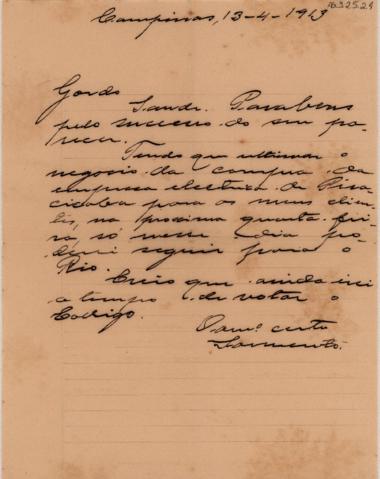 1632524
Campinas, 13-4-1913
Gordo
Saude. Parabens
pelo successo do seu pa-
recer.
Tendo que ultimar o
negocio da compra da
empresa electrica de Pira
cicaba para os meus clien
tes, na proxima quarta fei
ra, só nesse dia po-
derei seguir para o
Rio.
Creio que ainda irei
a tempo de votar o
Codigo.
O amº certo
Sarmento.